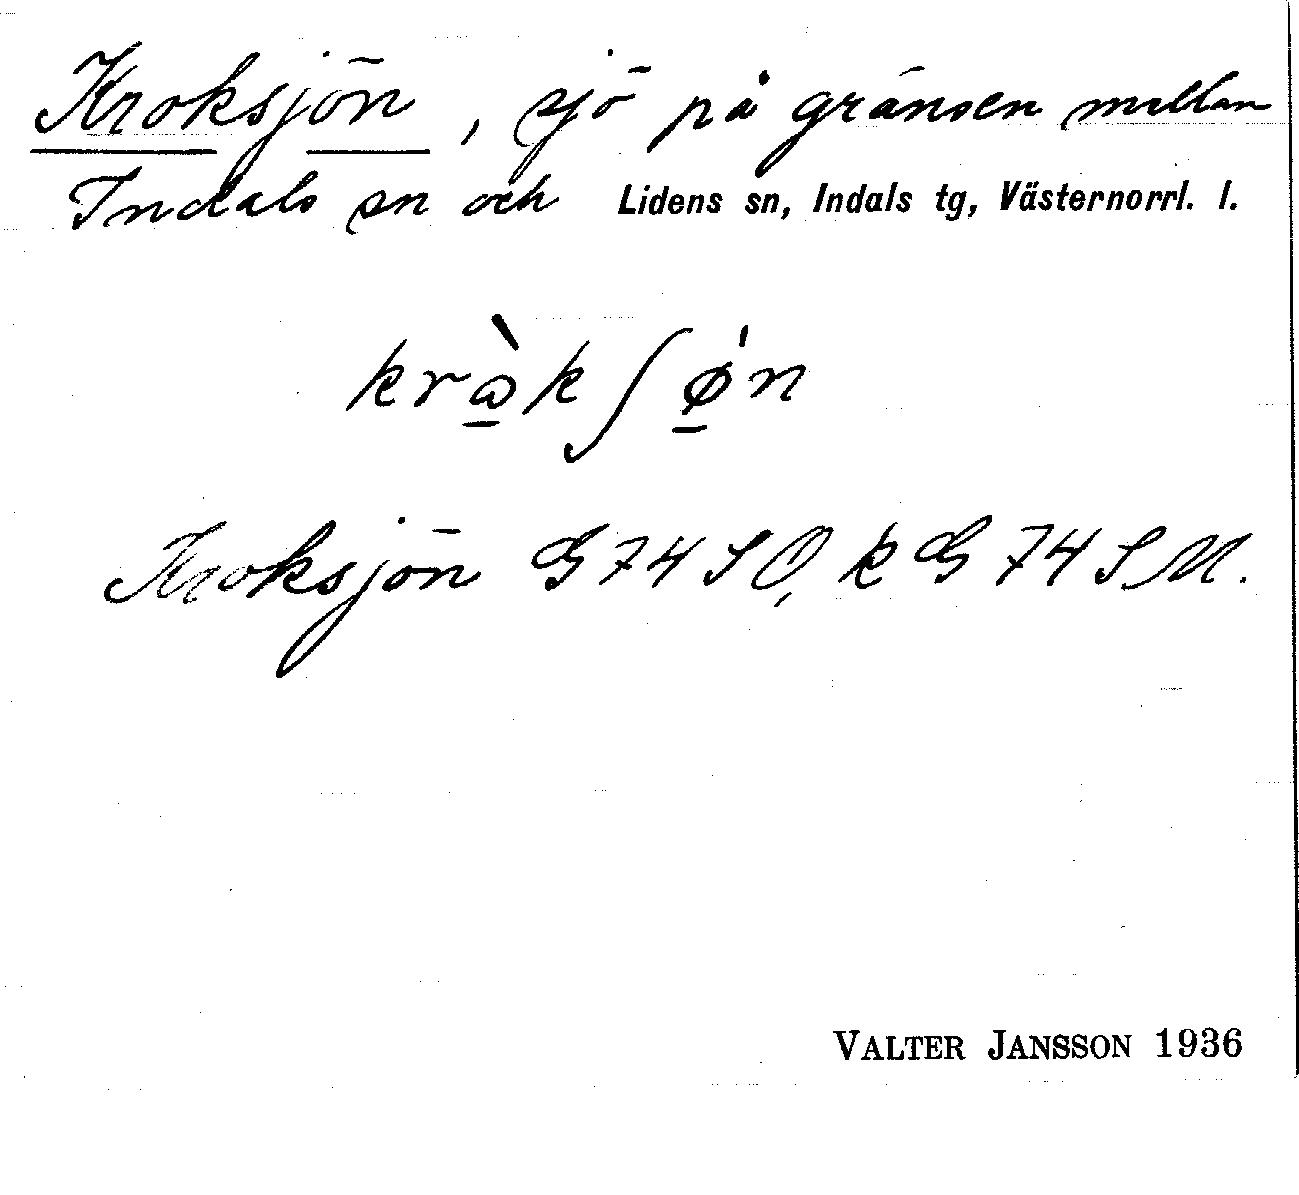 Kroksjön, sjö på gränsen mellan
Indals sn och Lidens sn, Indals tg, Västernorrl. l.
krὼkʃǿn
Kroksjön G 74 SO, k G 74 SM.
VALTER JANSSON 1936